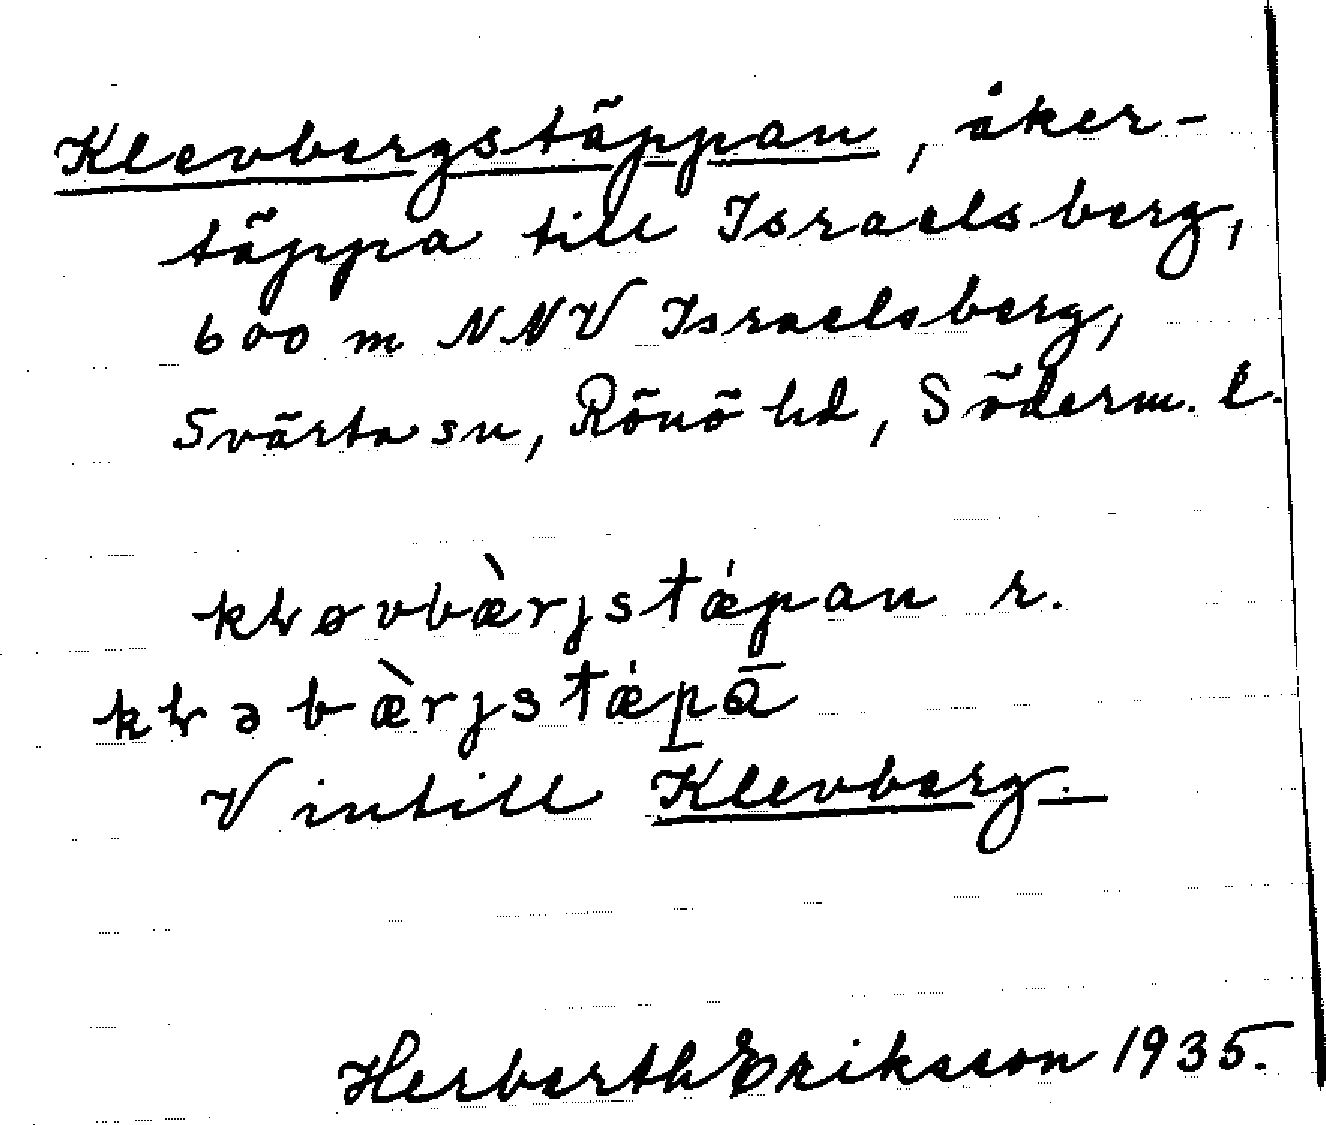 Klevbergstäppan, åker-
täppa till Israelsberg,
600 m NNV Israelsberg,
Svärta sn, Rönö hd, Söderm. l.
r.
V intill Klevberg.
Herberth Eriksson 1935.